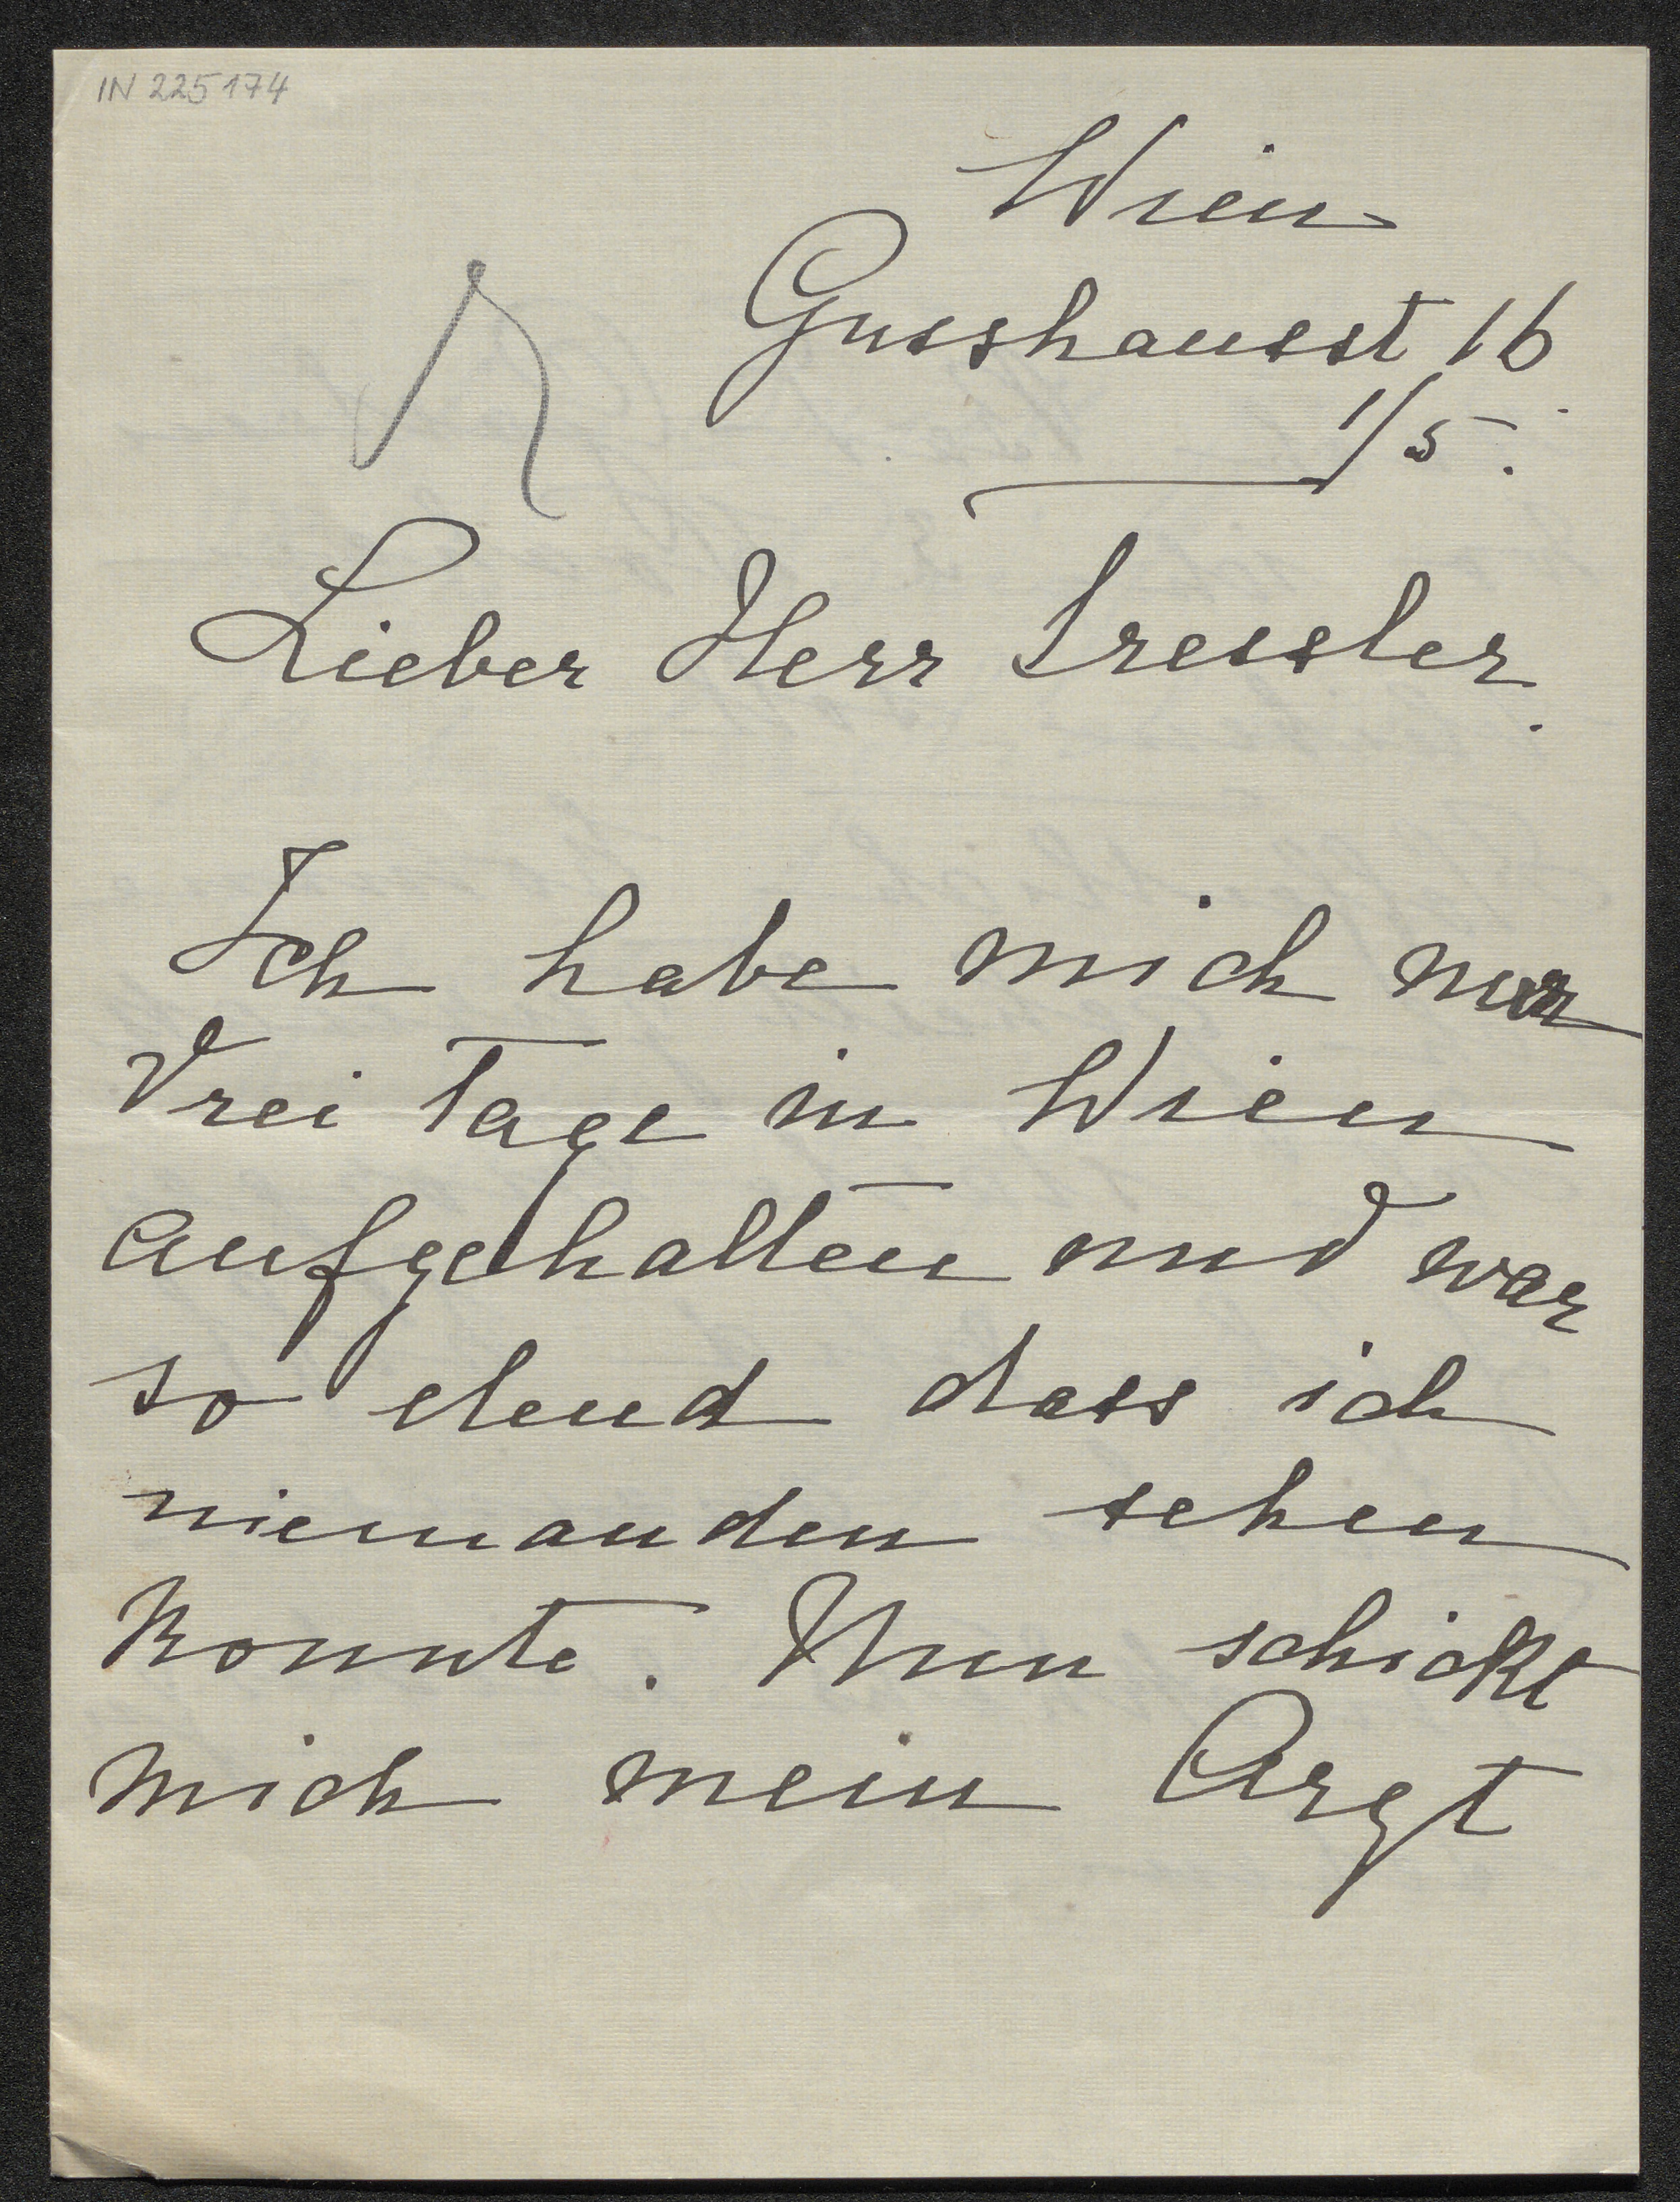 IN 225174
Wien
Gusshausst 16
1/5.
Lieber Herr Tressler.
Ich habe mich nur
drei Tage in Wien
aufgehalten und war
so elend dass ich
niemanden sehen
konnte. Nun schickt
mich mein Arzt